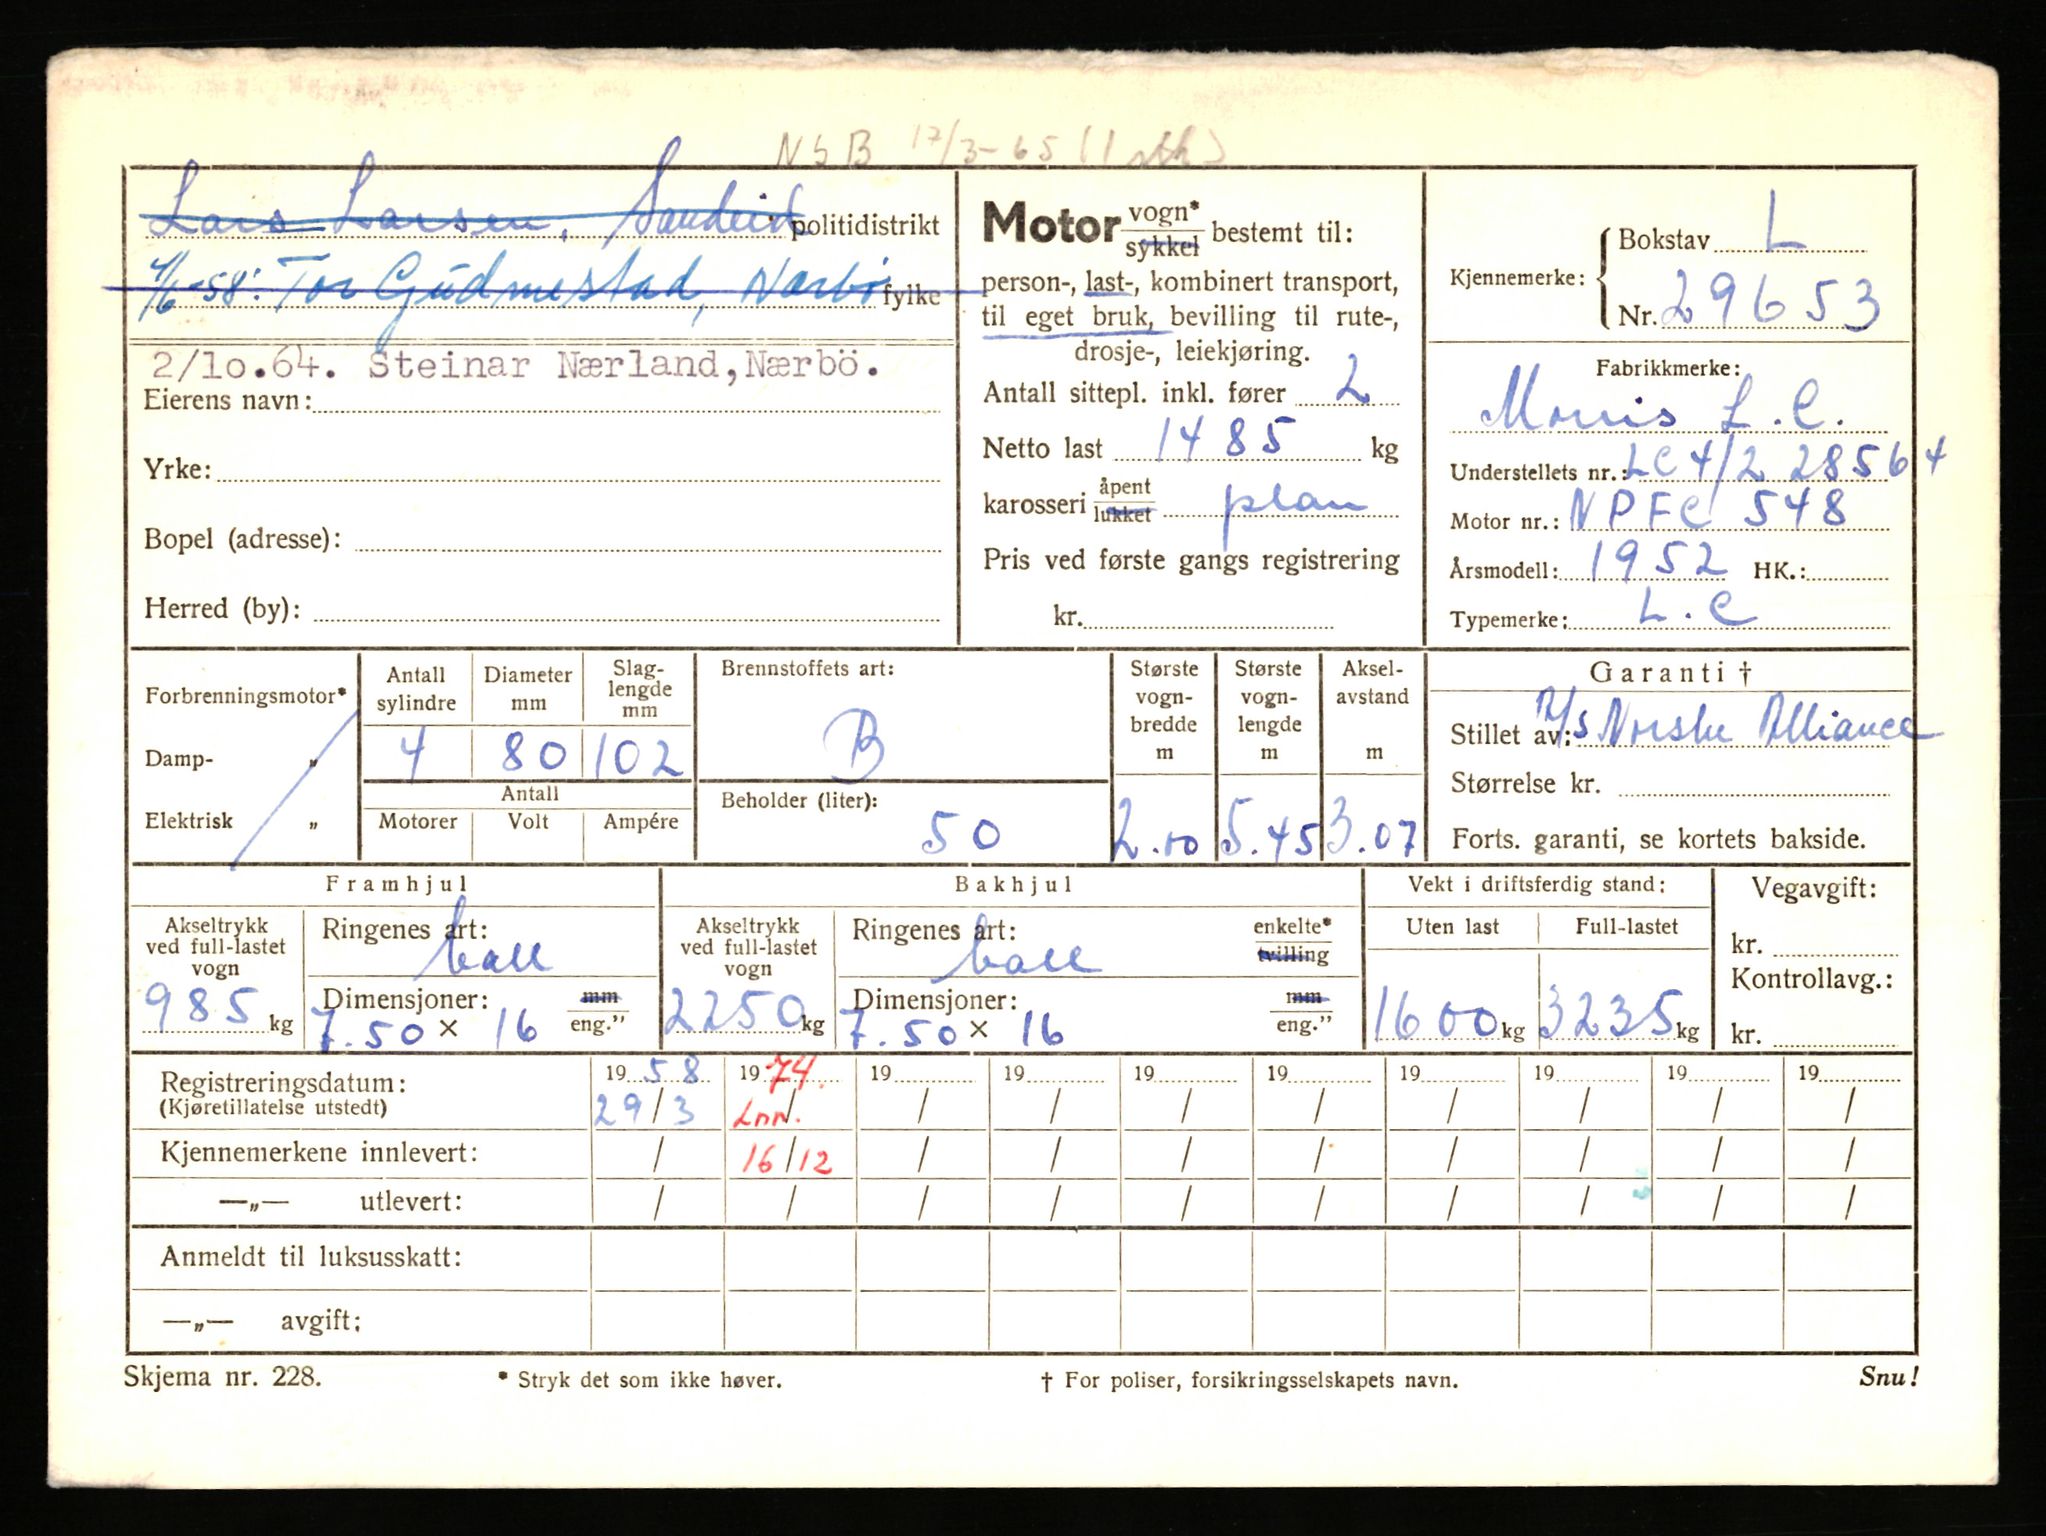 NSB 17/3-65 (1 stk)
Lars Larsen, Sandeid politidistrikt
4/6-58: Tor Gudmestad, Nærbø fylke
2/10.64. Steinar Nærland, Nærbö.
Eierens navn:
Yrke:
Bopel (adresse):
Herred (by):
Motor vogn* sykkel bestemt til:
person-, last-, kombinert transport,
til eget bruk, bevilling til rute-,
drosje-, leiekjøring.
Antall sittepl. inkl. fører 2
Netto last 1485 kg
karosseri åpent lukket plan
Pris ved første gangs registrering
kr.
Kjennemerke: Bokstav L
Nr. 29653
Fabrikkmerke:
Morris L.C.
Understellets nr.: LC4/228564
Motor nr.: NPFC 548
Årsmodell: 1952 HK.:
Typemerke: L.C
Forbrenningsmotor*
Damp- „
Elektrisk „
Antall sylindre Diameter mm Slag-lengde mm
4 80 102
Antall
Motorer Volt Ampére
Brennstoffets art:
B
Beholder (liter):
50
Største vogn-bredde m Største vogn-lengde m Aksel-avstand m
2.00 5.45 3.07
Garanti †
Stillet av: A/S Norske Alliance
Størrelse kr.
Forts. garanti, se kortets bakside.
Framhjul
Akseltrykk ved full-lastet vogn
985 kg
Ringenes art:
ball
Dimensjoner: mm eng.”
7.50 × 16
Bakhjul
Akseltrykk ved full-lastet vogn
2250 kg
Ringenes art: enkelte* tvilling
ball
Dimensjoner: mm eng.”
7.50 × 16
Vekt i driftsferdig stand:
Uten last Full-lastet
1600 kg 3235 kg
Vegavgift:
kr.
Kontrollavg.:
kr.
Registreringsdatum: 19 58 19 74. 19 19 19 19 19 19 19 19
(Kjøretillatelse utstedt) 29/3 Lnn. / / / / / / / / /
Kjennemerkene innlevert: / 16/12 / / / / / / / /
—„— utlevert: / / / / / / / / / /
Anmeldt til luksusskatt:
—„— avgift:
Skjema nr. 228. * Stryk det som ikke høver. † For poliser, forsikringsselskapets navn. Snu!